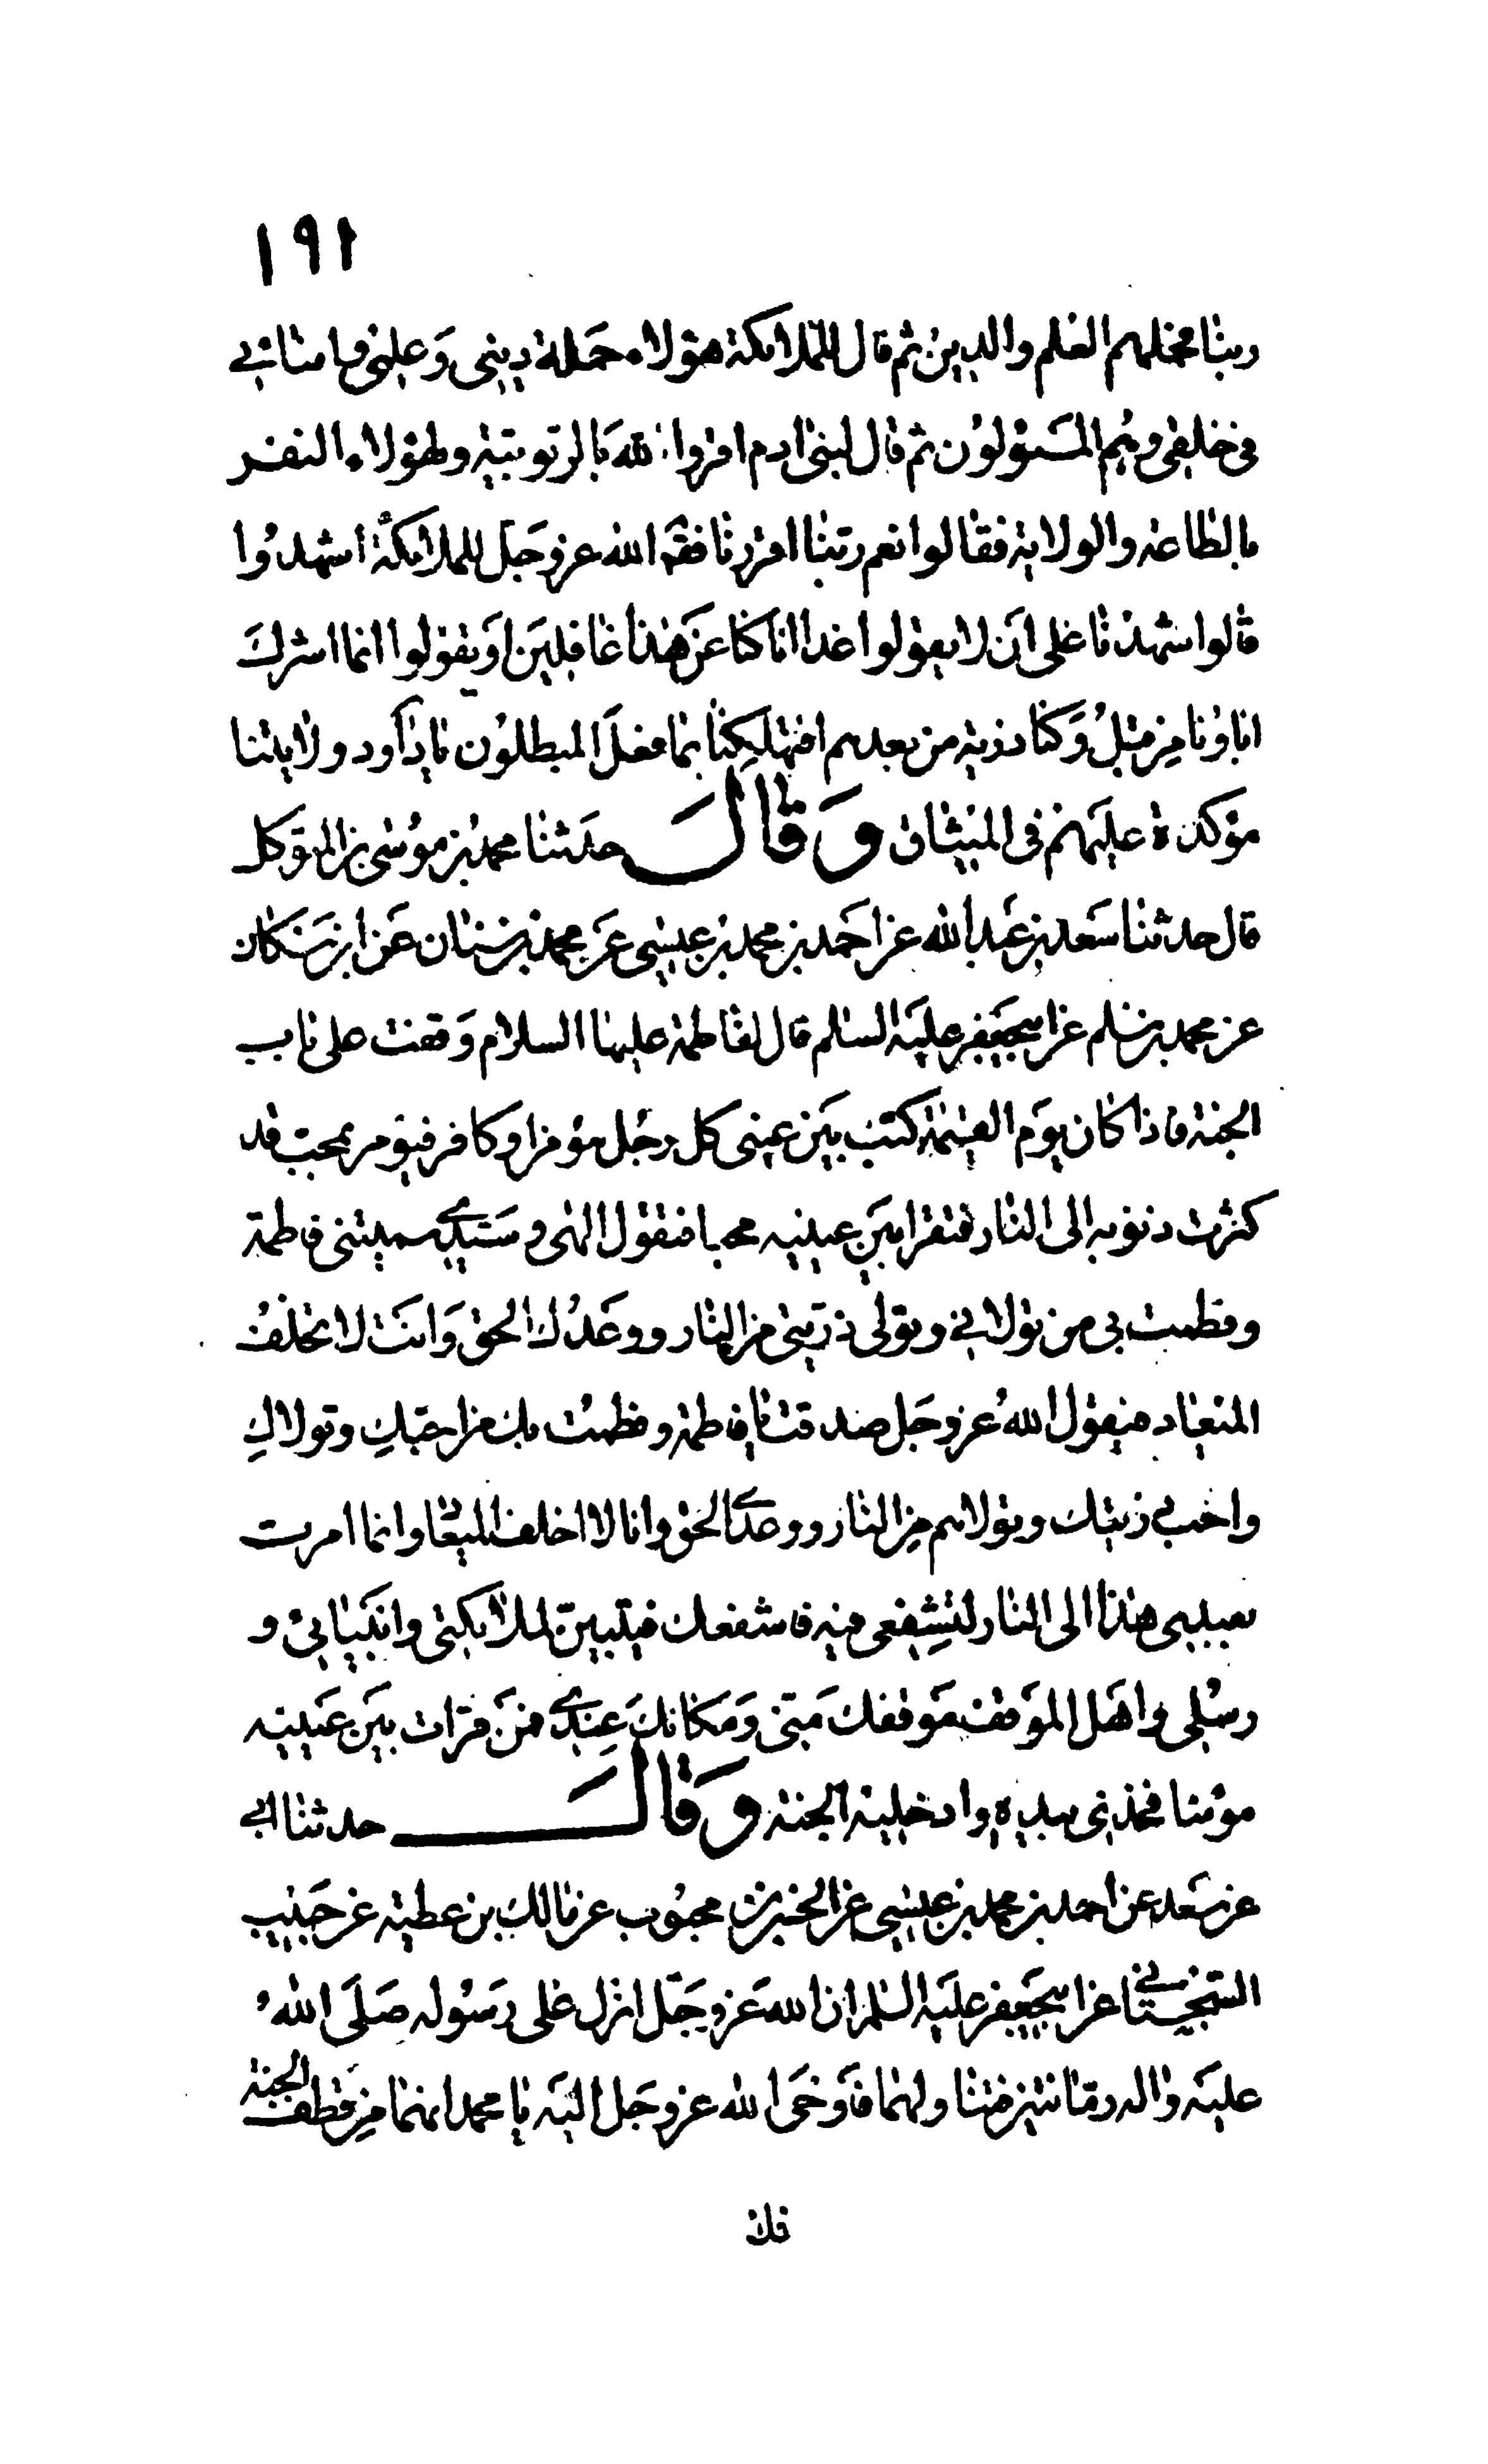 ١٩١
ربنا فحملهم العلم والدين ثم قال للملائكة هؤلاء حملة ديني وعلمي وامنائي
في خلقي وهم المسؤلون ثم قال لبني ادم اقروا لله بالربوبية ولهؤلاء النفر
بالطاعة والولاية فقالوا نعم ربنا اقررنا فقال الله عز وجل للملائكة اشهدوا
قالوا شهدنا على ان لا يقولوا غدا انا كنا عن هذا غافلين او يقولوا انما اشرك
اباؤنا من قبل وكنا ذرية من بعدهم افتهلكنا بما فعل المبطلون يا داود ولايتنا
مؤكدة عليهم في الميثاق وقال حدثنا محمد بن موسى بن المتوكل
قال حدثنا سعد بن عبد الله عن احمد بن محمد بن عيسى عن محمد بن سنان عن ابن مسكان
عن محمد بن مسلم عن ابي جعفر عليه السلم قال لفاطمة عليها السلام وقفت على باب
الجنة فاذا كان يوم القيمة كتب بين عيني كل رجل مؤمن او كافر فيؤمر بمحب قد
كثرت ذنوبه الى النار فتقرا بين عينيه محبا فتقول الهي و سيدي سميتني فاطمة
وفطمت بي من تولاني وتولى ذريتي من النار ووعدك الحق وانت لا تخلف
الميعاد فيقول الله عز وجل صدقت يا فاطمة وفطمت بك من احبك وتولاك
واحب ذريتك وتولاهم من النار ووعدي الحق وانا لا اخلف الميعاد وانما امرت
بعبدي هذا الى النار لتشفعي فيه فاشفعك فيتبين لملائكتي وانبيائي و
رسلي واهل الموقف موقفك مني ومكانك عندي فمن قرات بين عينيه
مؤمنا فخذي بيده وادخليه الجنة وقال حدثنا ابي
عن سعد عن احمد بن محمد بن عيسى عن الحسن بن محبوب عن مالك بن عطية عن حبيب
السجستاني عن ابي جعفر عليه السلم ان الله عز وجل انزل على رسوله صلى الله
عليه واله رمانتين فتناولهما فاوحى الله عز وجل اليه يا محمد انهما من قطف الجنة
فلا